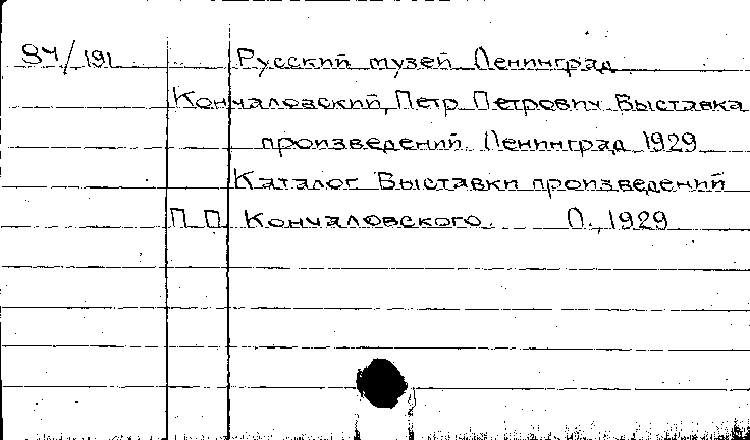 84/191 Русский музей Ленинград
Кончаловский, Петр Петрович Выставка
произведений. Ленинград 1929
Каталог Выставки произведений
П. П. Кончаловского. Л., 1929